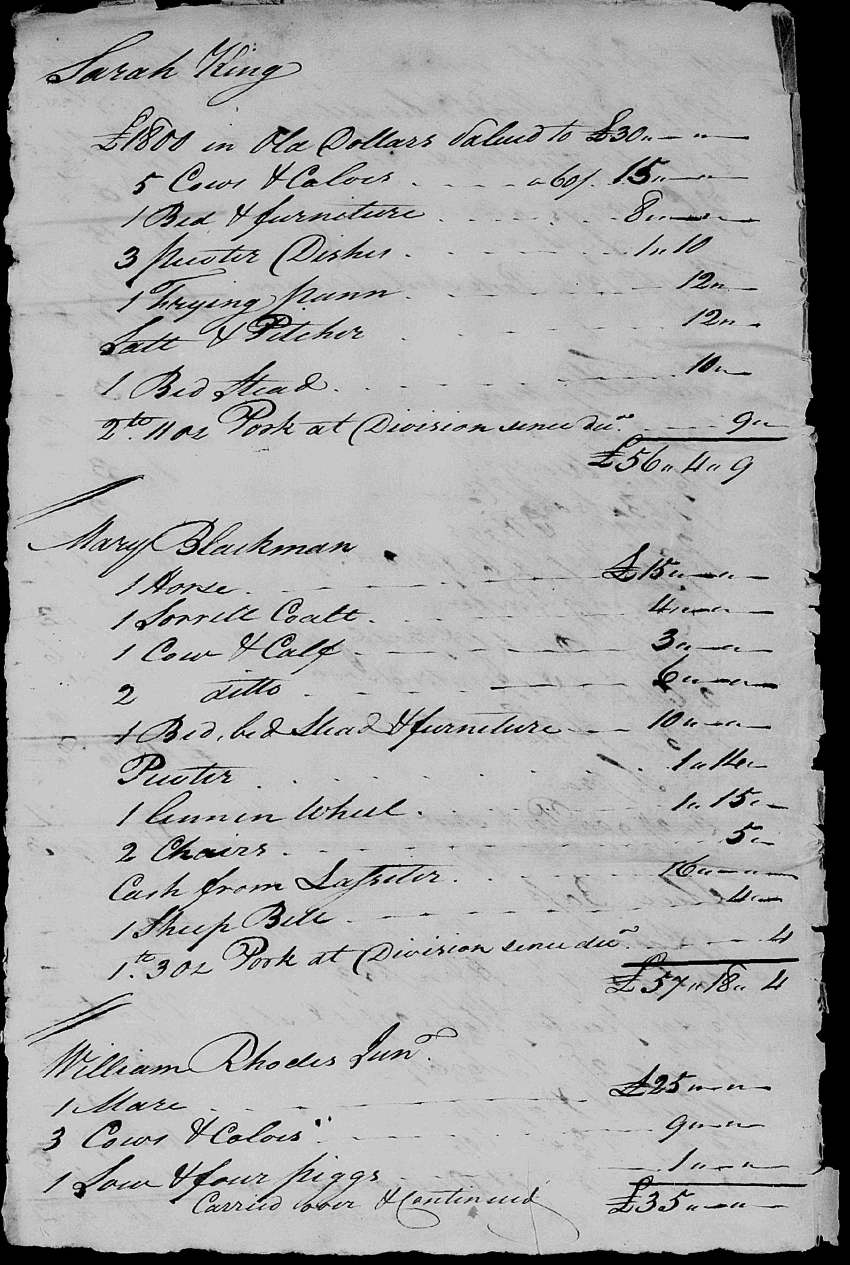 Sarah King
£1800 in Old Dollars Valued to £30"—"—
5 Cows & Calves . . . . a 60/. 15"—"—
1 Bed & furniture . . . . 8"—"—
3 pewter Dishes . . . . 1"10
1 Frying pann . . . . 12"—
Salt & Pitcher . . . . 12"—
1 Bed Stead . . . . 10"—
2 lb. 11 oz Pork at Division sence decd. . . . . 9"—
£56"4"9
Mary Blackman
1 Horse . . . . £15"—"—
1 Sorrell Coalt . . . . 4"—"—
1 Cow & Calf . . . . 3"—"—
2 ditto . . . . 6"—"—
1 Bed, bed Stead & furniture — — 10"—"—
Pewter . . . . 1"14"—
1 Linnin Wheel . . . . 1"15"—
2 Chairs . . . . 5"—
Cash from Lassiter . . . . 16"—"—
1 Sheep Bell . . . . 4"—
1 lb. 3 oz Pork at Division sence decd. . . . . 4
£57"18"4
William Rhodes Junr.
1 Mare . . . . £25"—"—
3 Cows & Calves . . . . 9"—"—
1 Sow & four piggs . . . . 1"—"—
Carried over & Continued £35"—"—